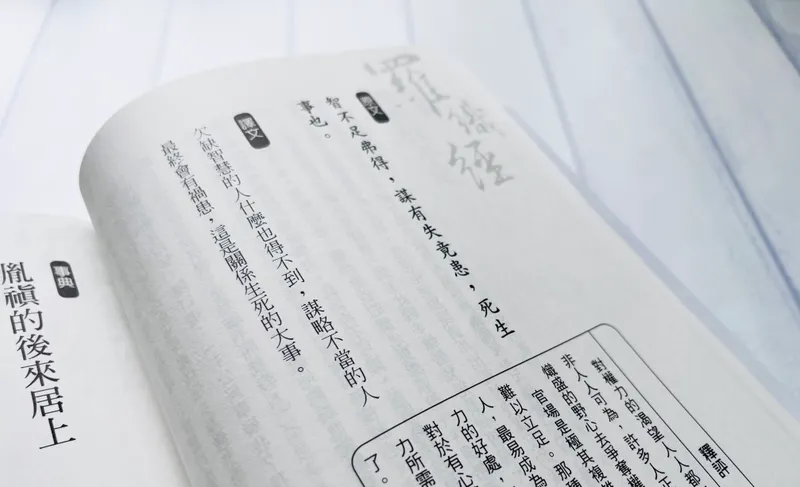 羅織經
原文
智不足弗得，謀有失竟患，死生
事也。
譯文
欠缺智慧的人什麼也得不到，謀略不當的人
最終會有禍患，這是關係生死的大事。
釋評
對權力的渴望，人人都
非人人可為，許多人正
熾盛的野心去爭奪權
官場是極其複
難以立足。那種
人，最易成為
力的好處，
對於有心
力所需
了。
事典
胤禛的後來居上